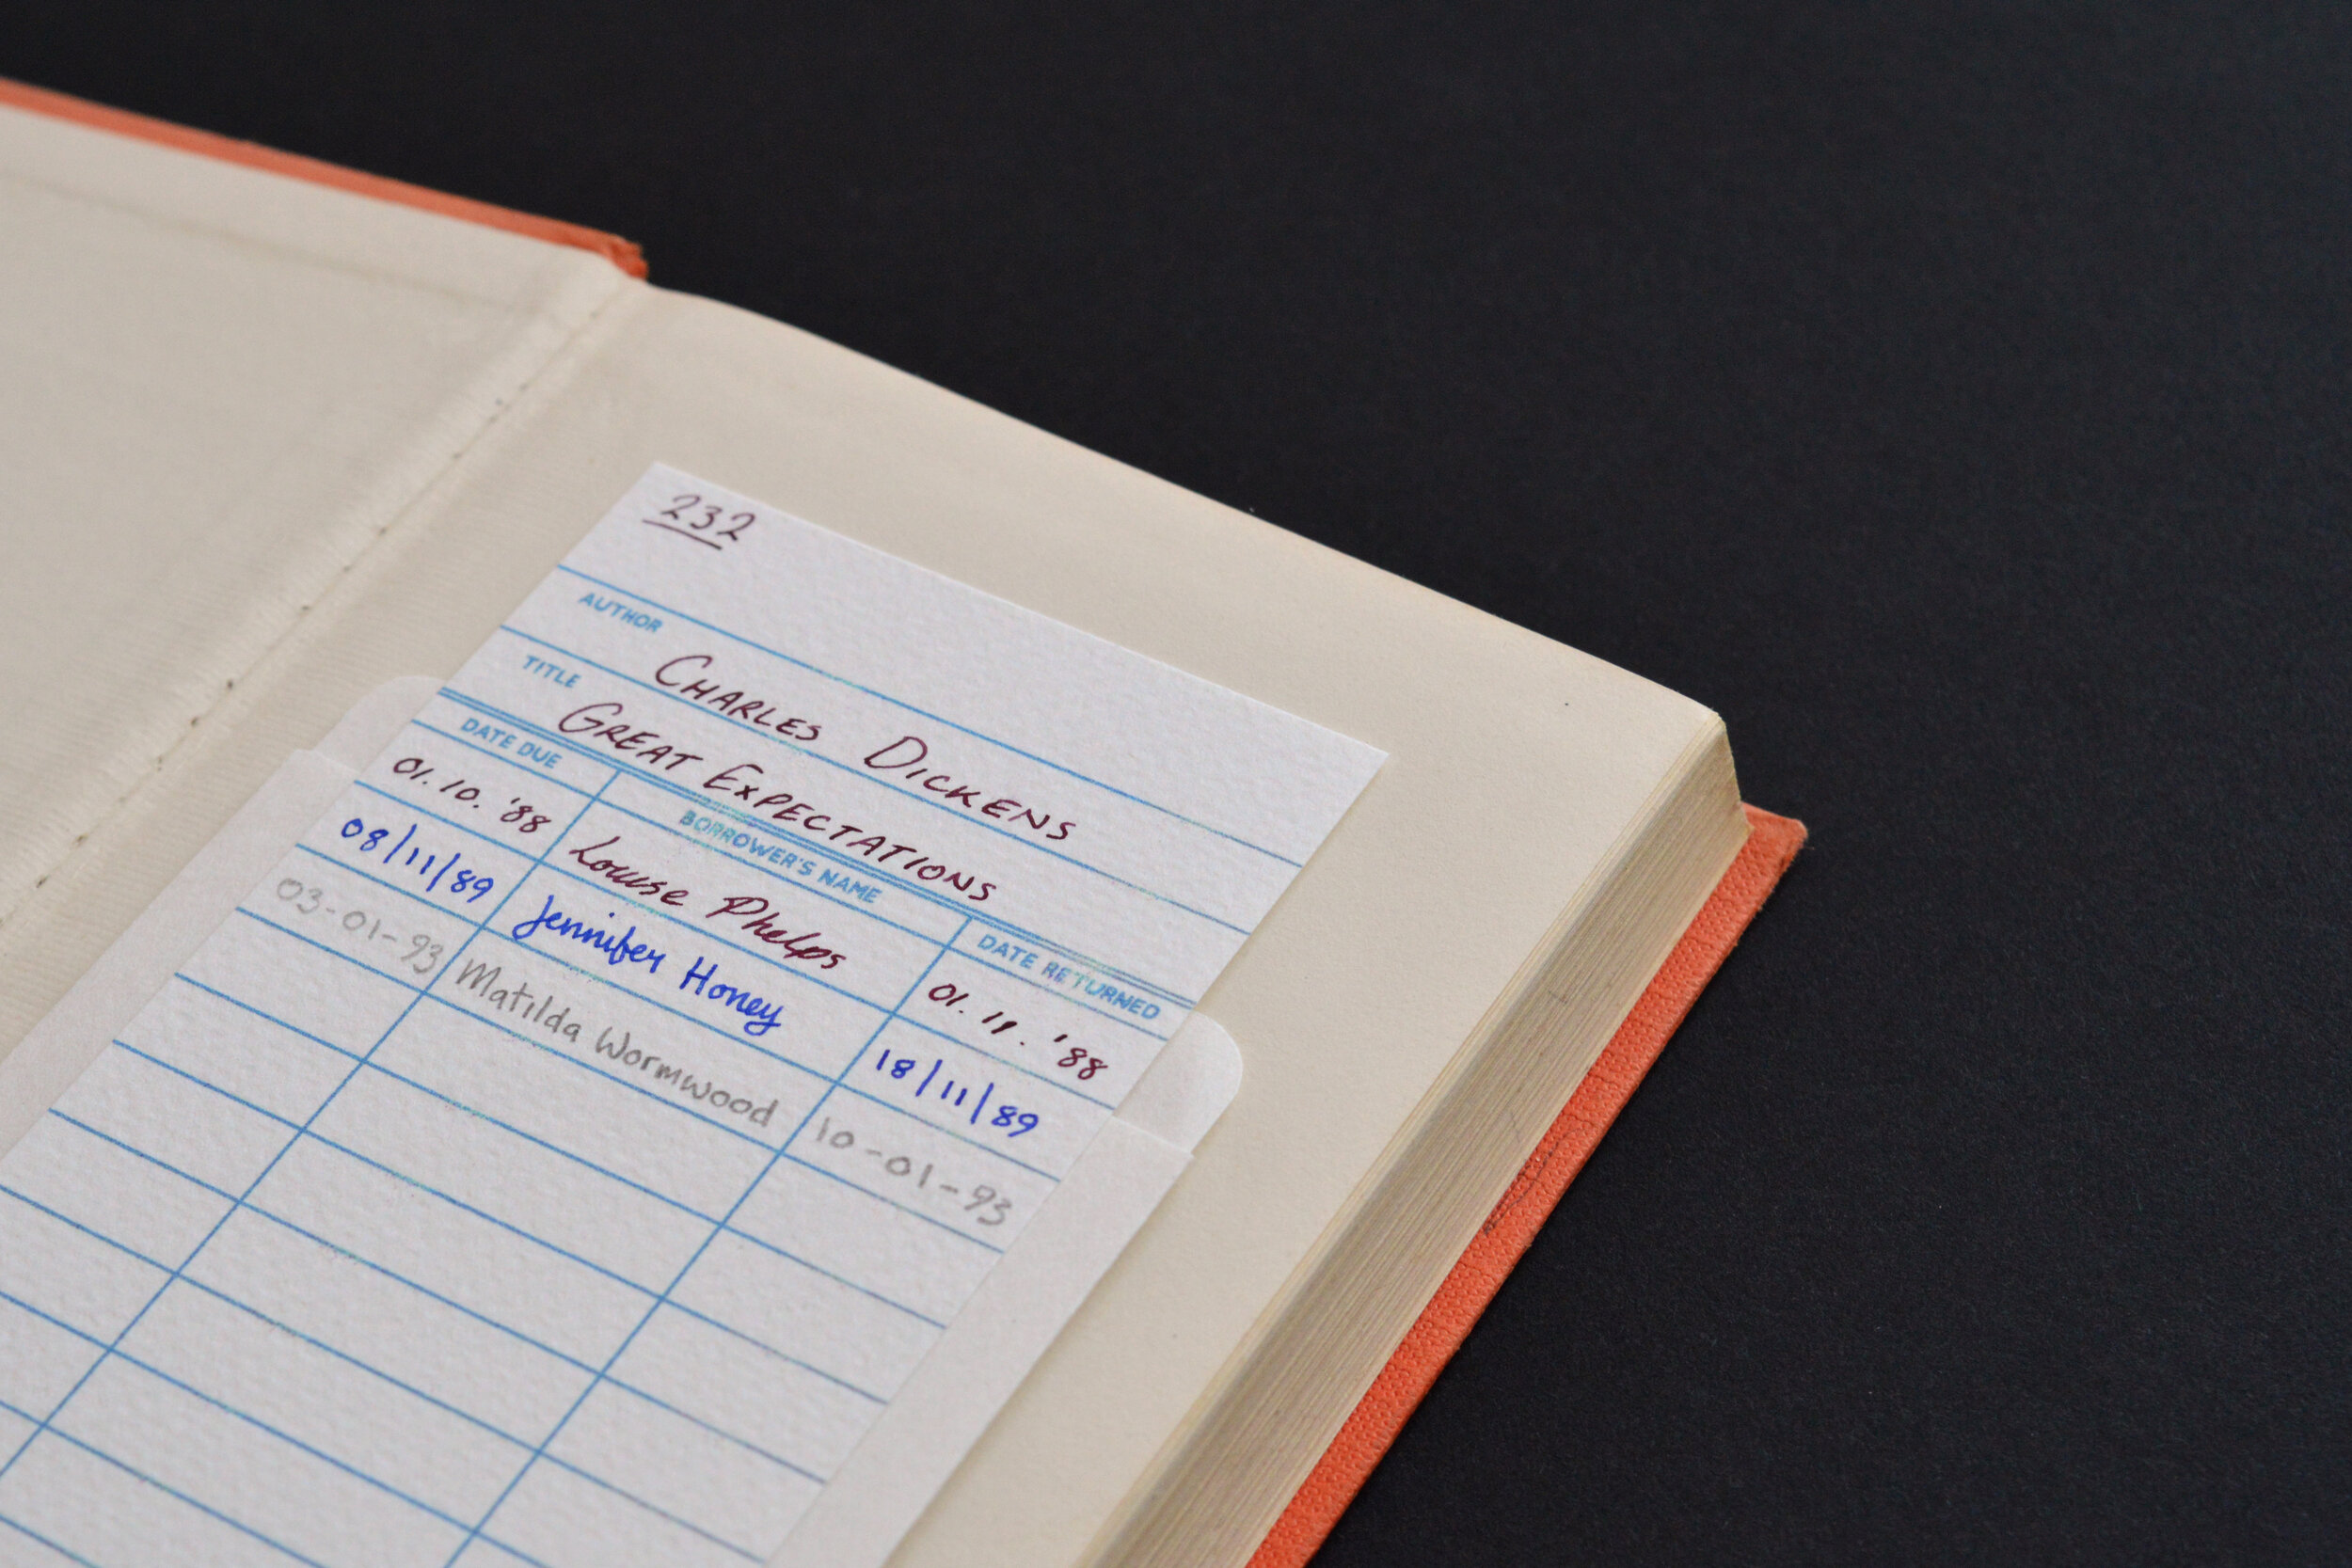 232
AUTHOR
CHARLES DICKENS
TITLE
GREAT EXPECTATIONS
DATE DUE BORROWER'S NAME DATE RETURNED
01.10.'88 Louise Phelps 01.11.'88
08/11/89 Jennifer Honey 18/11/89
03-01-93 Matilda Wormwood 10-01-93